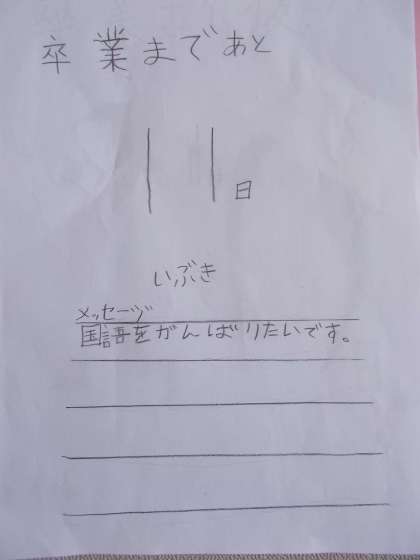 卒業まであと
11日
いぶき
メッセージ
国語をがんばりたいです。